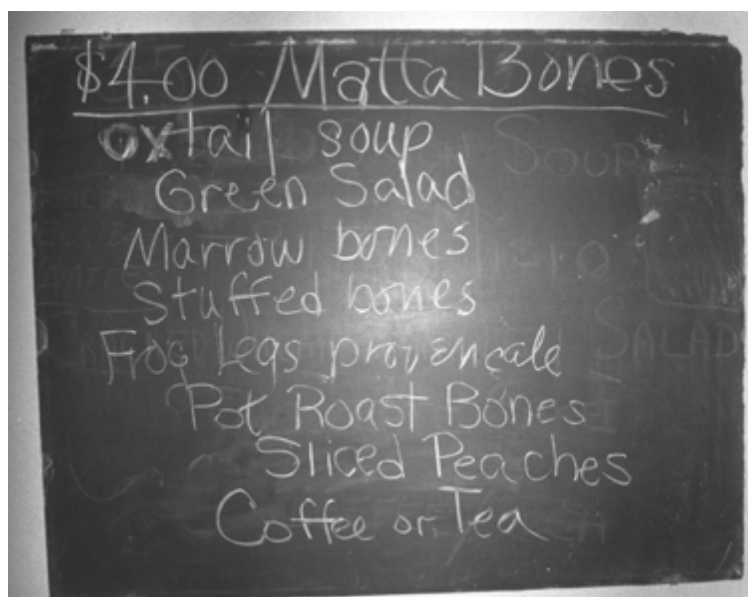 $4.00 Matta Bones
oxtail soup
Green Salad
Marrow bones
Stuffed bones
Frog Legs provencale
Pot Roast Bones
Sliced Peaches
Coffee or Tea
SOUP
SALAD